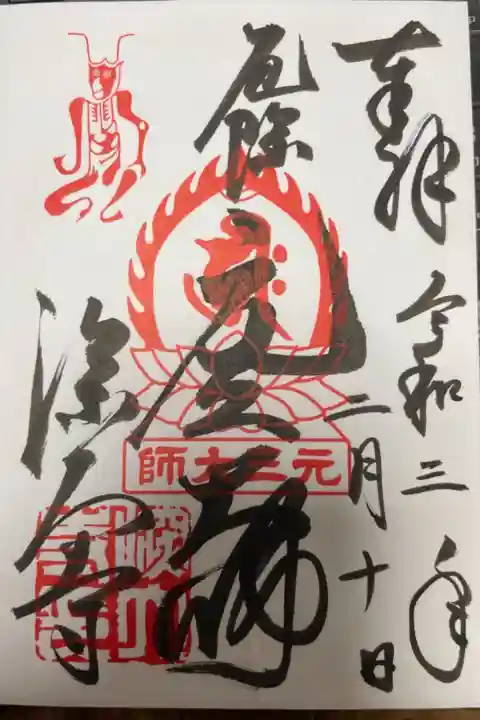 奉拝
令和三年
二月十日
厄除
元三大師
師大三元
深大寺